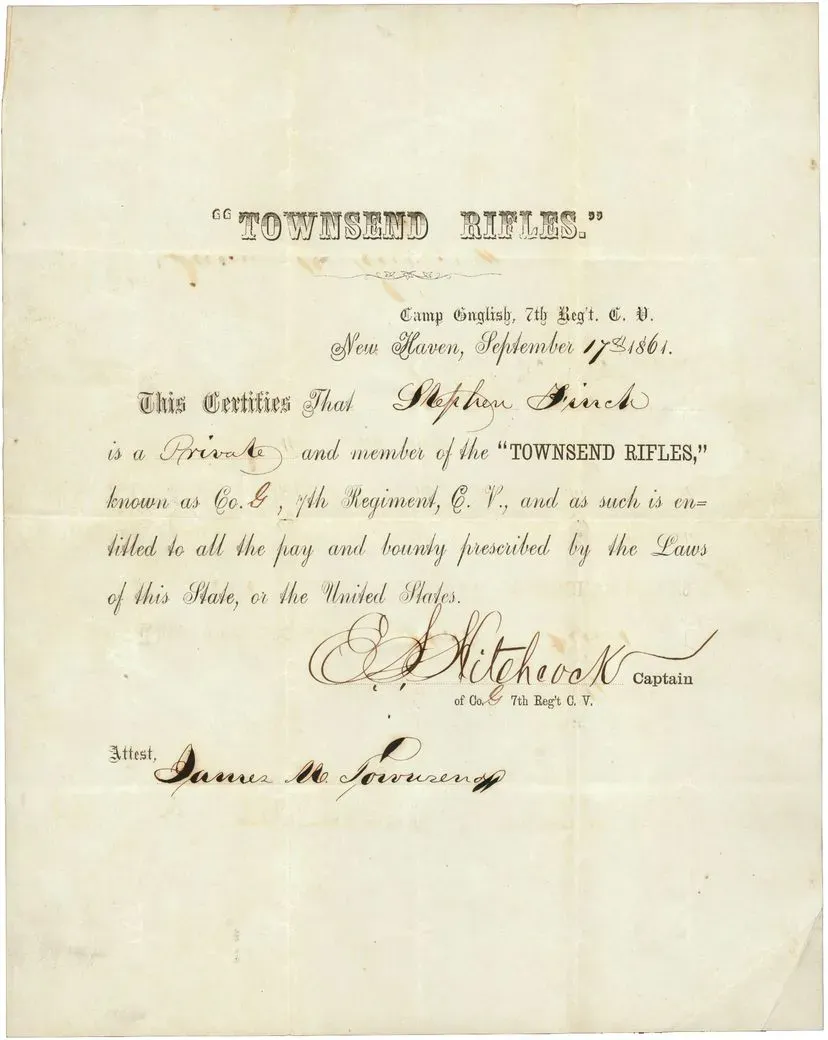 “TOWNSEND RIFLES.”
Camp English, 7th Reg't. C. V.
New Haven, September 17th 1861.
This Certifies That Stephen Finch
is a Private and member of the “TOWNSEND RIFLES,”
known as Co. G, 7th Regiment, C. V., and as such is en=
titled to all the pay and bounty prescribed by the Laws
of this State, or the United States.
E. S. Hitchcock Captain
of Co. G 7th Reg't C. V.
Attest, James M. Townsend